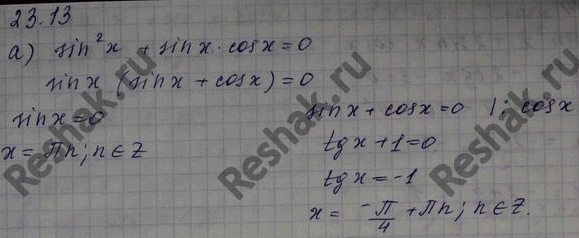 23.13
а) sin²x + sinx·cosx=0
sinx (sinx + cosx)=0
sinx=0
x = πn; n∈Z
sinx + cosx=0 |: cosx
tgx+1=0
tgx=-1
x = -π/4 + πn; n∈Z.
Reshak.ru
Reshak.ru
Reshak.ru